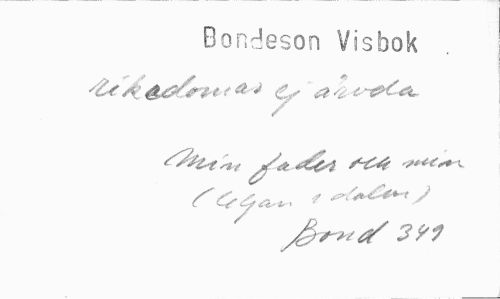 Bondeson Visbok
rikedomar ej ärvda
Min fader och min
(Liljan i dalen)
Bond 349